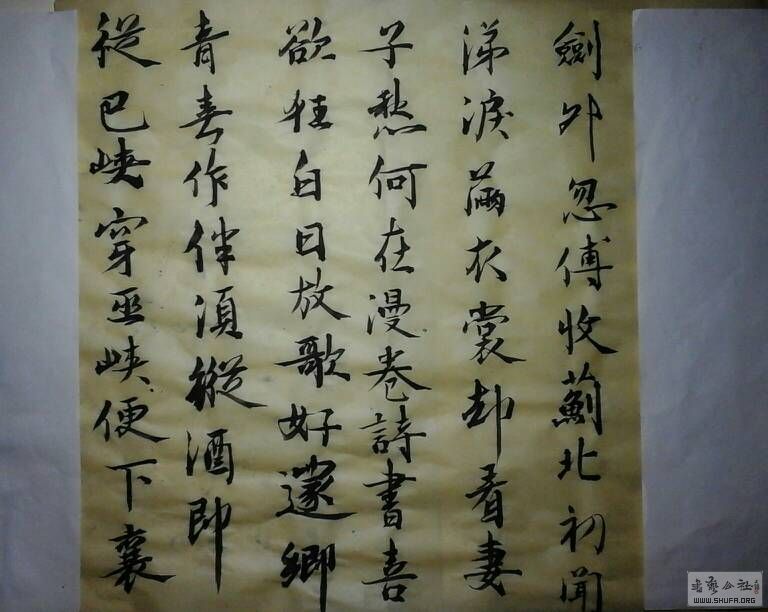 劍外忽傳收薊北初聞
涕淚滿衣裳却看妻
子愁何在漫卷詩書喜
欲狂白日放歌好還鄉
青春作伴須縱酒即
從巴峽穿巫峽便下襄
書藝公社
WWW.SHUFA.ORG